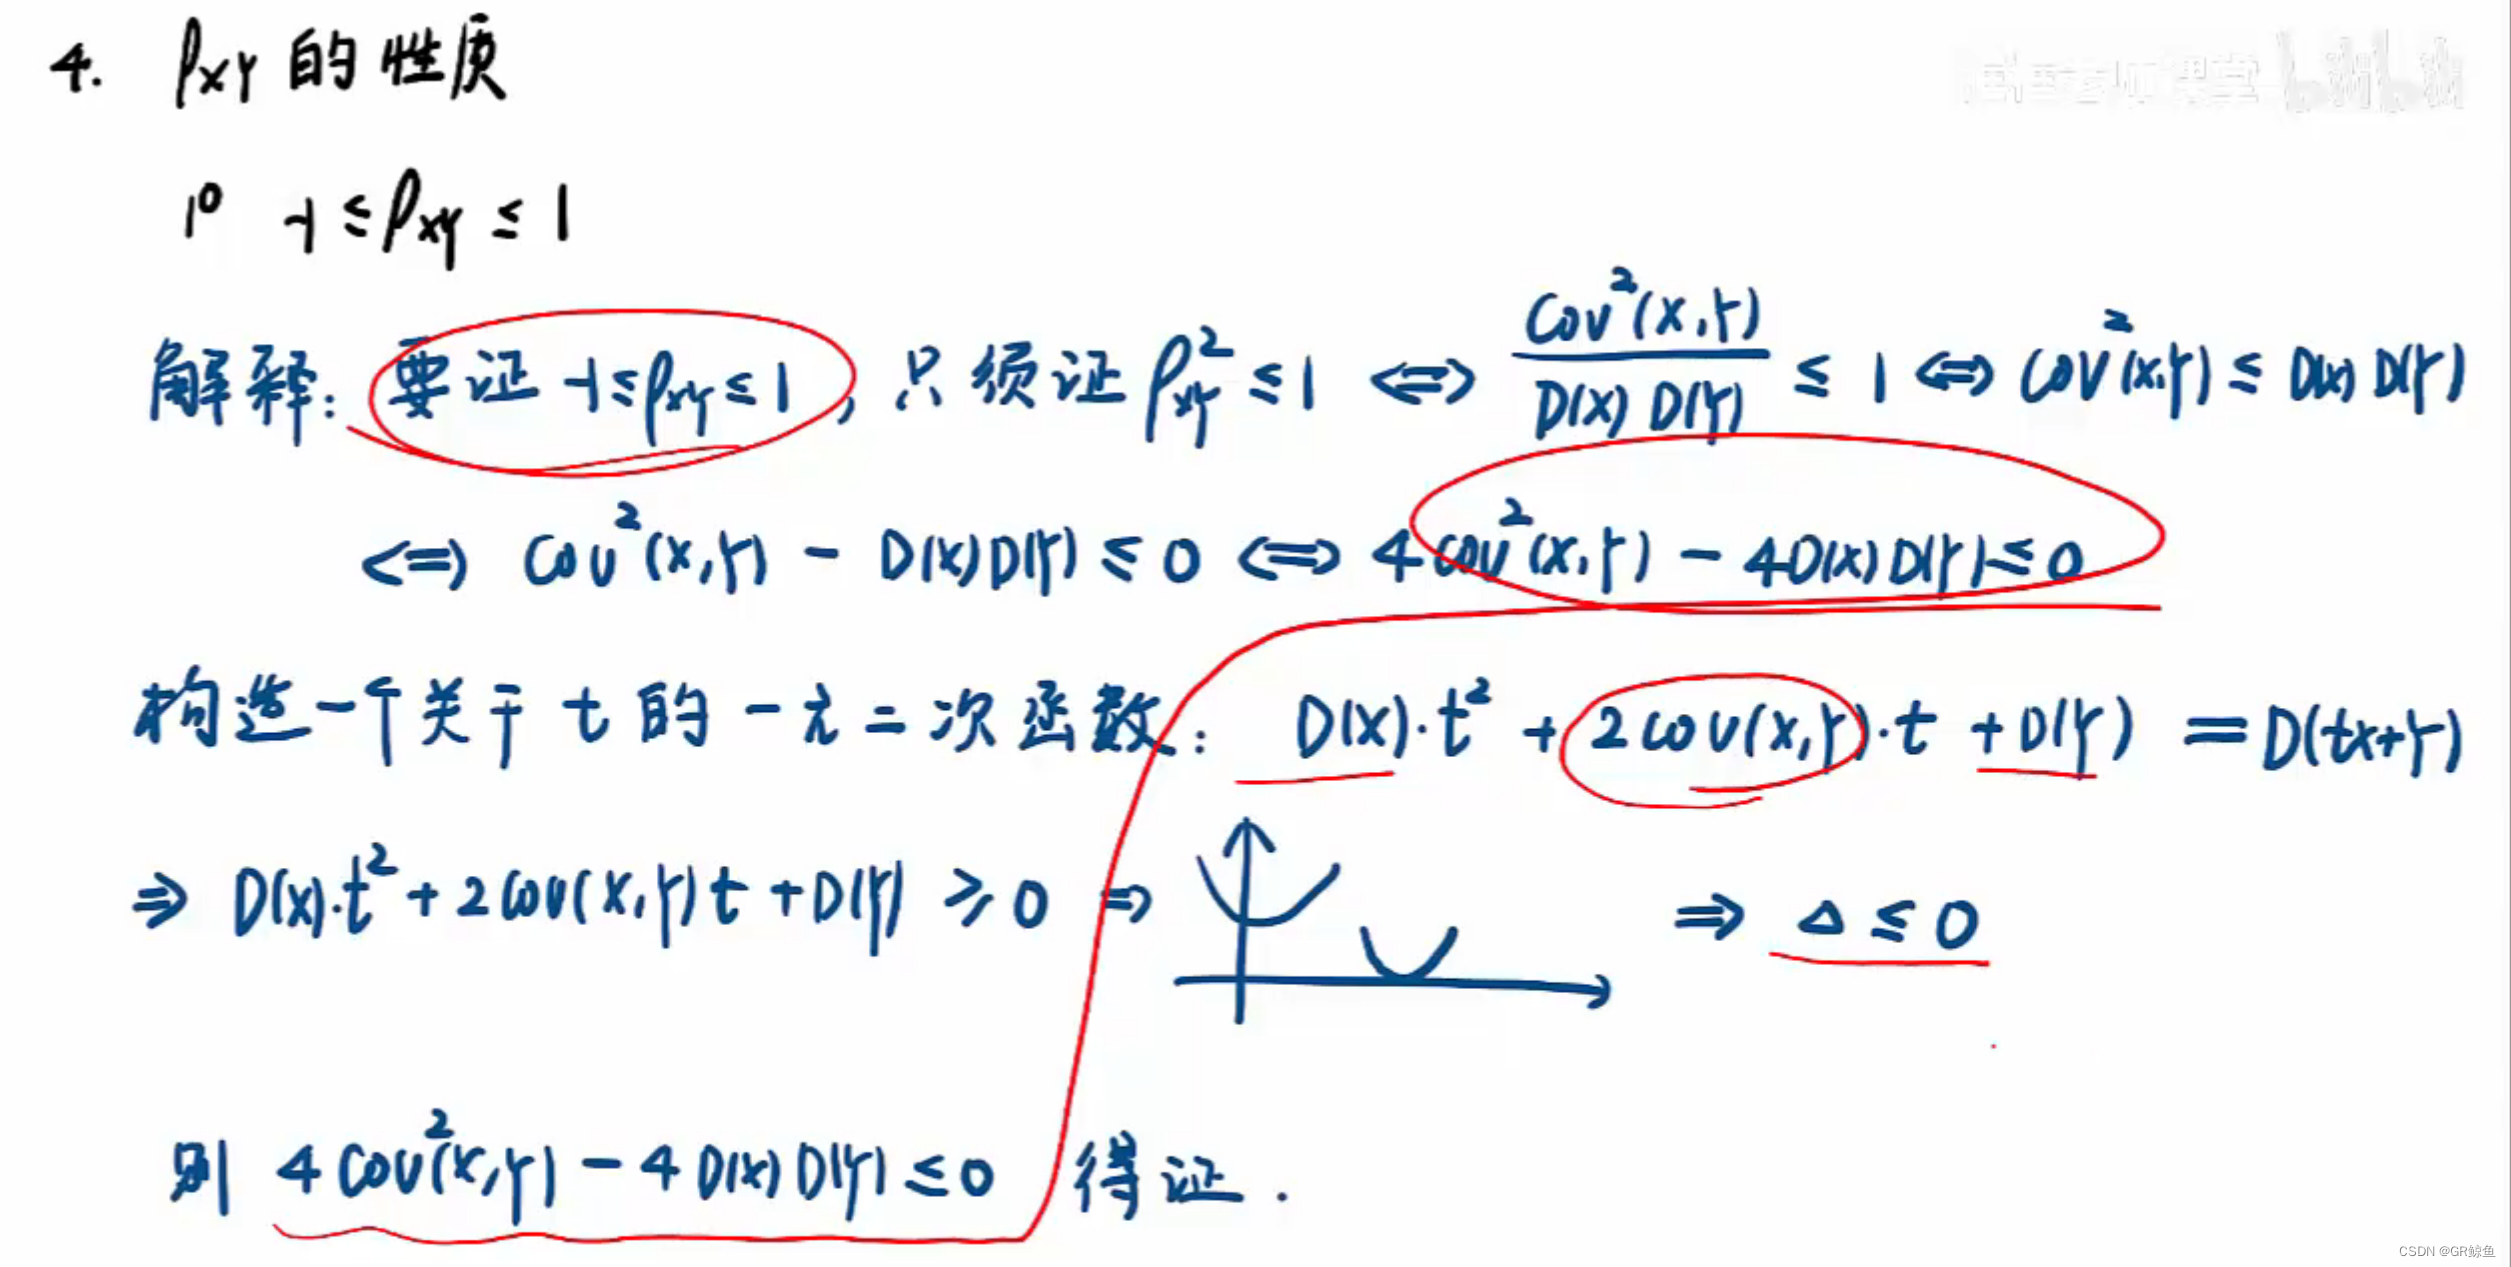 4. ρxy 的性质
1° -1≤ρxy≤1
解释: 要证 -1≤ρxy≤1, 只须证 ρ²xy≤1 <=> Cov²(X,Y)/D(X)D(Y) ≤ 1 <=> Cov²(X,Y) ≤ D(X)D(Y)
<=> Cov²(X,Y) - D(X)D(Y) ≤ 0 <=> 4Cov²(X,Y) - 4D(X)D(Y) ≤ 0
构造一个关于 t 的一元二次函数: D(X)·t² + 2Cov(X,Y)·t + D(Y) = D(tX+Y)
⇒ D(X)·t² + 2Cov(X,Y)t + D(Y) ≥ 0 ⇒ ⇒ Δ ≤ 0
则 4Cov²(X,Y) - 4D(X)D(Y) ≤ 0 得证.
CSDN @GR鲸鱼